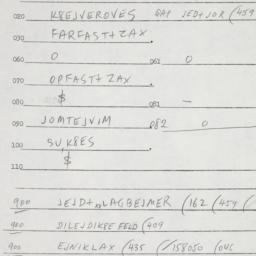 020 KREJVEROVES GAP JEDTJOR (459
030 FARFAST+ZAX
060 O 061 O
070 OPFAST+ZAX
080 $ 081 —
090 JOMTEJVIM 082 O
100 SUKRES
110 $
900 (162 (454 (
900 DILEJDIKRE FELD (409
900 EJNIKLAX (435 (158050 (04C